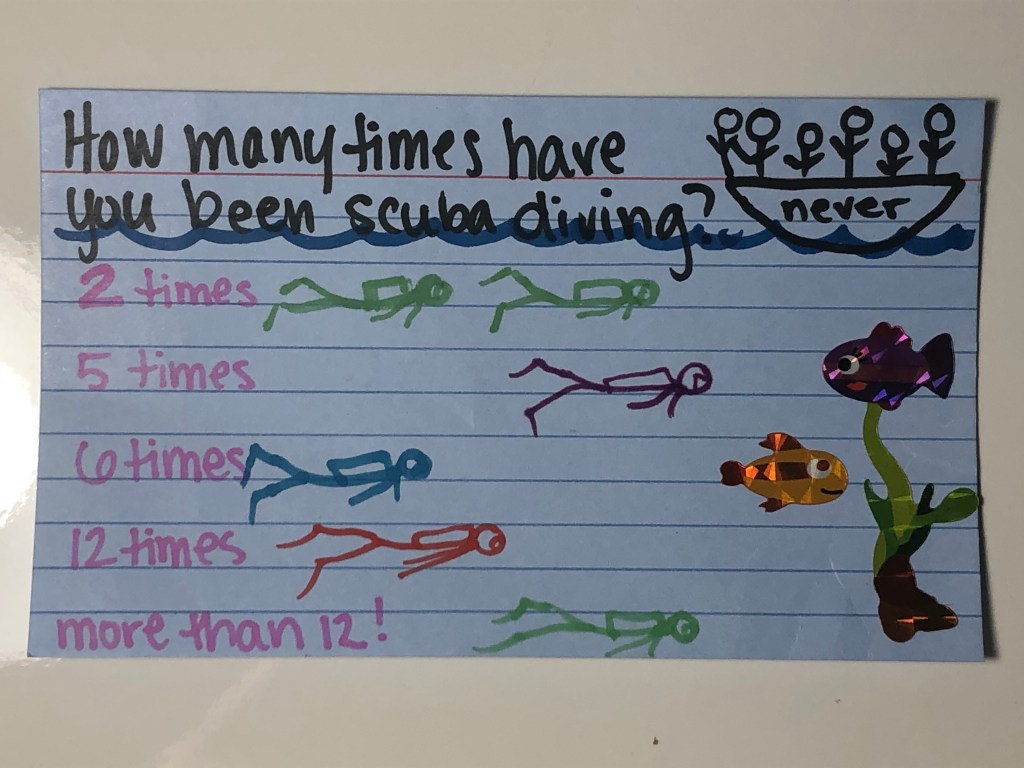 How many times have
you been scuba diving?
never
2 times
5 times
6 times
12 times
more than 12!